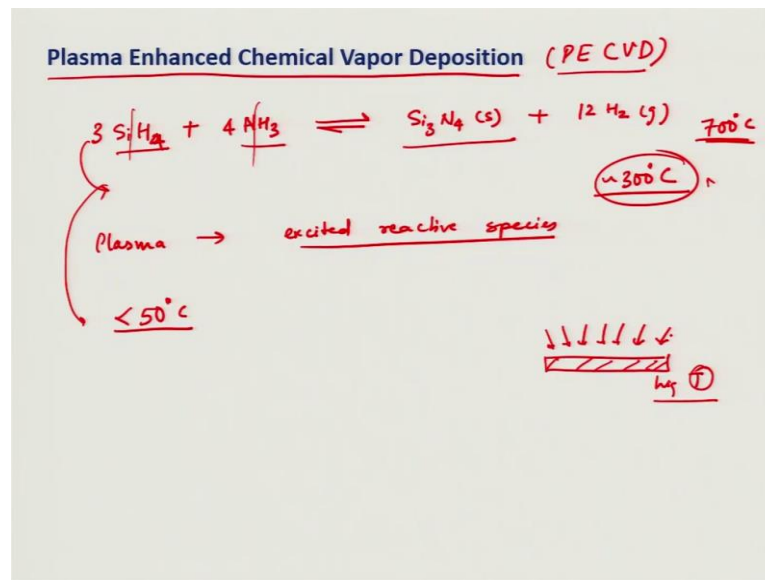 Plasma Enhanced Chemical Vapor Deposition (PE CVD)
3 SiH4 + 4 NH3 ⇌ Si3N4 (s) + 12 H2 (g) 700°C
~300°C
Plasma → excited reactive species
< 50°C
T